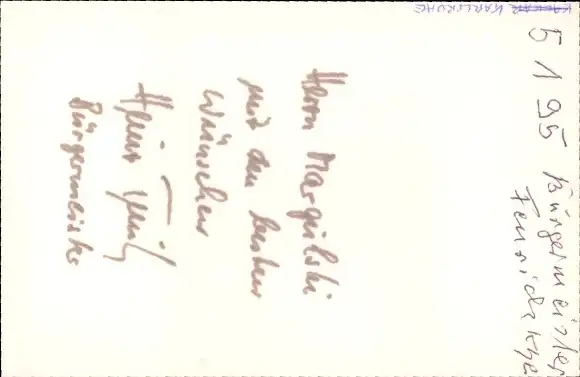 KARLSRUHE
5 1 95 Bürgermeister
Fenrich KA
Herrn Margulski
mit den besten
Wünschen
Heinz Fenrich
Bürgermeister